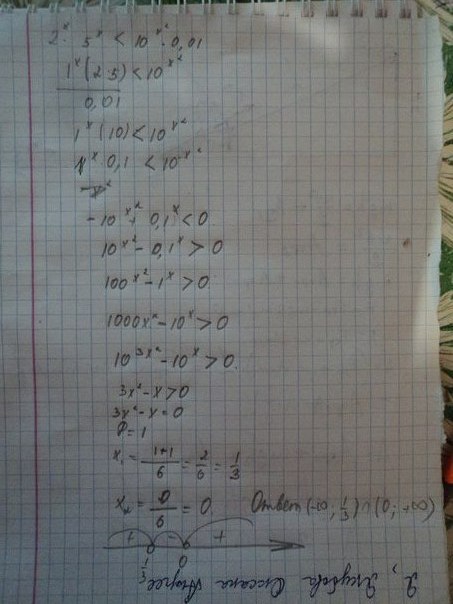 2ˣ · 5ˣ < 10ˣ² · 0,01
1ˣ(2 · 5) < 10ˣ²
0,01
1ˣ(10) < 10ˣ²
1ˣ · 0,1 < 10ˣ²
-10ˣ² + 0,1ˣ < 0
10ˣ² - 0,1ˣ > 0
100ˣ² - 1ˣ > 0
1000ˣ² - 10ˣ > 0
10³ˣ² - 10ˣ > 0
3x² - x > 0
3x² - x = 0
D = 1
x₁ = (1+1)/6 = 2/6 = 1/3
x₂ = 0/6 = 0
Ответ (-∞; 1/3) ∪ (0; +∞)
+ - +
1/3 0
Я,